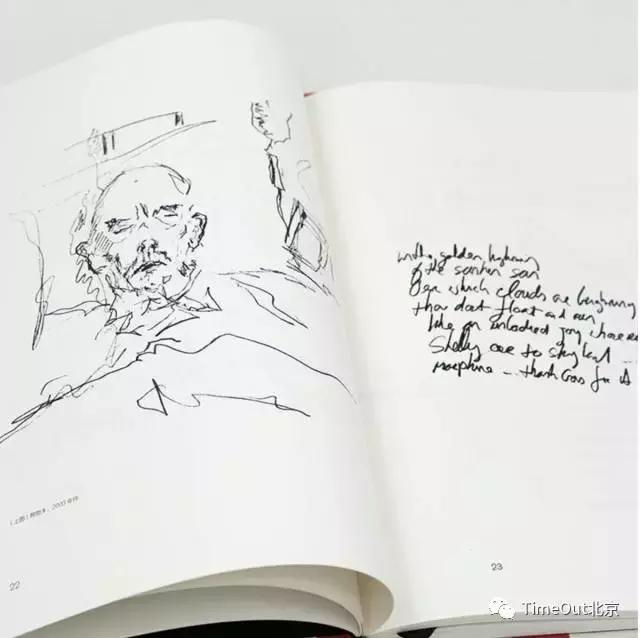 In the golden lightning
of the sunken sun
Oer which clouds are brightning
thou dost float and run
like an unbodied joy whose
Shelley ode to skylark ...
morphine ... thank God for it
(上图) 2003年作
22
23
TimeOut北京